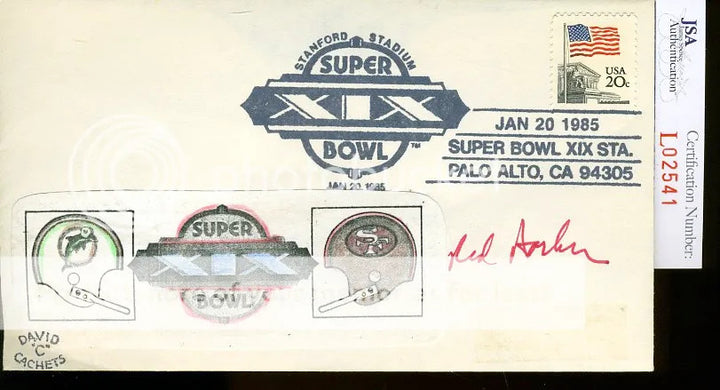 STANFORD STADIUM
SUPER
XIX
BOWL™
JAN 20, 1985
USA
20c
JAN 20 1985
SUPER BOWL XIX STA.
PALO ALTO, CA 94305
JSA
Authentication
Certification Number:
L02541
SUPER
XIX
BOWL
SF
DAVID
"C"
CACHETS